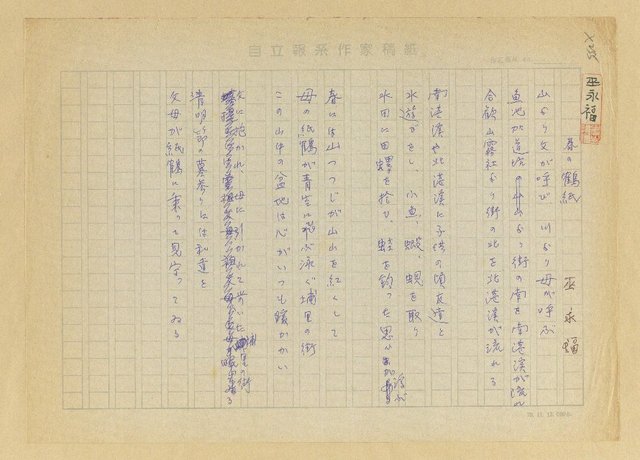 自立報系作家稿紙
巫永福
春の鶴紙
巫永福
山より父が呼び 川より母が呼ぶ
魚池か より街の南を南港溪が流れ
合歓山霧社より街の北を北港溪が流れる
南港溪や北港溪に子供の頃友達と
水遊びをし、小魚、蝦、蜆を取り
水田に田螺を拾ひ 蛙を釣った思い 浮ぶ
春には山つつじが山山を紅くして
母の紙鶴が青空に飛ぶ泳ぐ埔里の街
この山中の盆地は心がいつも暖かかい
父に抱かれ、母に引かれて歩いた埔里の街
清明節の墓参りには私達を
父母が紙鶴に乗って見守ってゐる